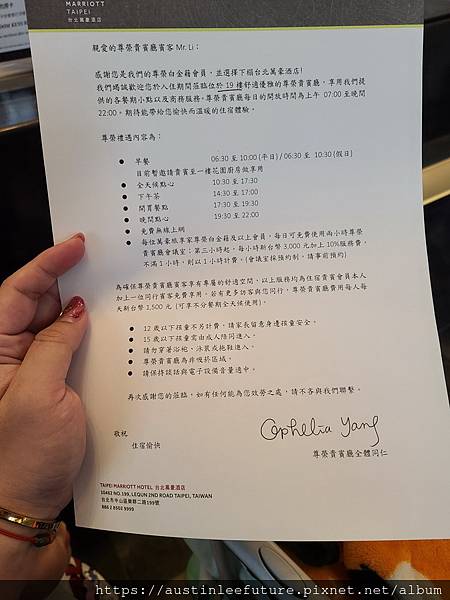 MARRIOTT
TAIPEI
台北萬豪酒店
親愛的尊榮貴賓廳賓客 Mr. Li：
感謝您是我們的尊榮白金籍會員，並選擇下榻台北萬豪酒店!
我們竭誠歡迎您於入住期間蒞臨位於 19 樓舒適優雅的尊榮貴賓廳，享用我們提
供的各餐期小點以及商務服務。尊榮貴賓廳每日的開放時間為上午 07:00 至晚間
22:00。期待能帶給您愉快而溫暖的住宿體驗。
尊榮禮遇內容為：
● 早餐 06:30 至 10:00 (平日) / 06:30 至 10:30 (假日)
目前暫邀請貴賓至一樓花園廚房做享用
● 全天候點心 10:30 至 17:30
● 下午茶 14:30 至 17:00
● 開胃餐點 17:30 至 19:30
● 晚間點心 19:30 至 22:00
● 免費無線上網
● 每位萬豪旅享家尊榮白金籍及以上會員，每日可免費使用兩小時尊榮
貴賓廳會議室；第三小時起，每小時新台幣 3,000 元加上 10%服務費，
不滿 1 小時，則以 1 小時計費。(會議室採預約制，請事前預約)
為確保尊榮貴賓廳賓客享有專屬的舒適空間，以上服務均為住宿貴賓會員本人
加上一位同行賓客免費享用。若有更多訪客與您同行，尊榮貴賓廳費用每人每
天新台幣 1,500 元 (可享不分餐期全天候使用)。
● 12 歲以下孩童不另計費，請家長留意身邊孩童安全。
● 15 歲以下孩童需由成人陪同進入。
● 請勿穿著浴袍、泳裝或拖鞋進入。
● 尊榮貴賓廳為非吸菸區域。
● 請保持談話與電子設備音量適中。
再次感謝您的蒞臨，如有任何能為您效勞之處，請不吝與我們聯繫。
敬祝
住宿愉快
Ophelia Yang
尊榮貴賓廳全體同仁
TAIPEI MARRIOTT HOTEL 台北萬豪酒店
10462 NO.199, LEQUN 2ND ROAD TAIPEI, TAIWAN
台北市中山區樂群二路199號
886 2 8502 9999
https://austinleefuture.pixnet.net/album